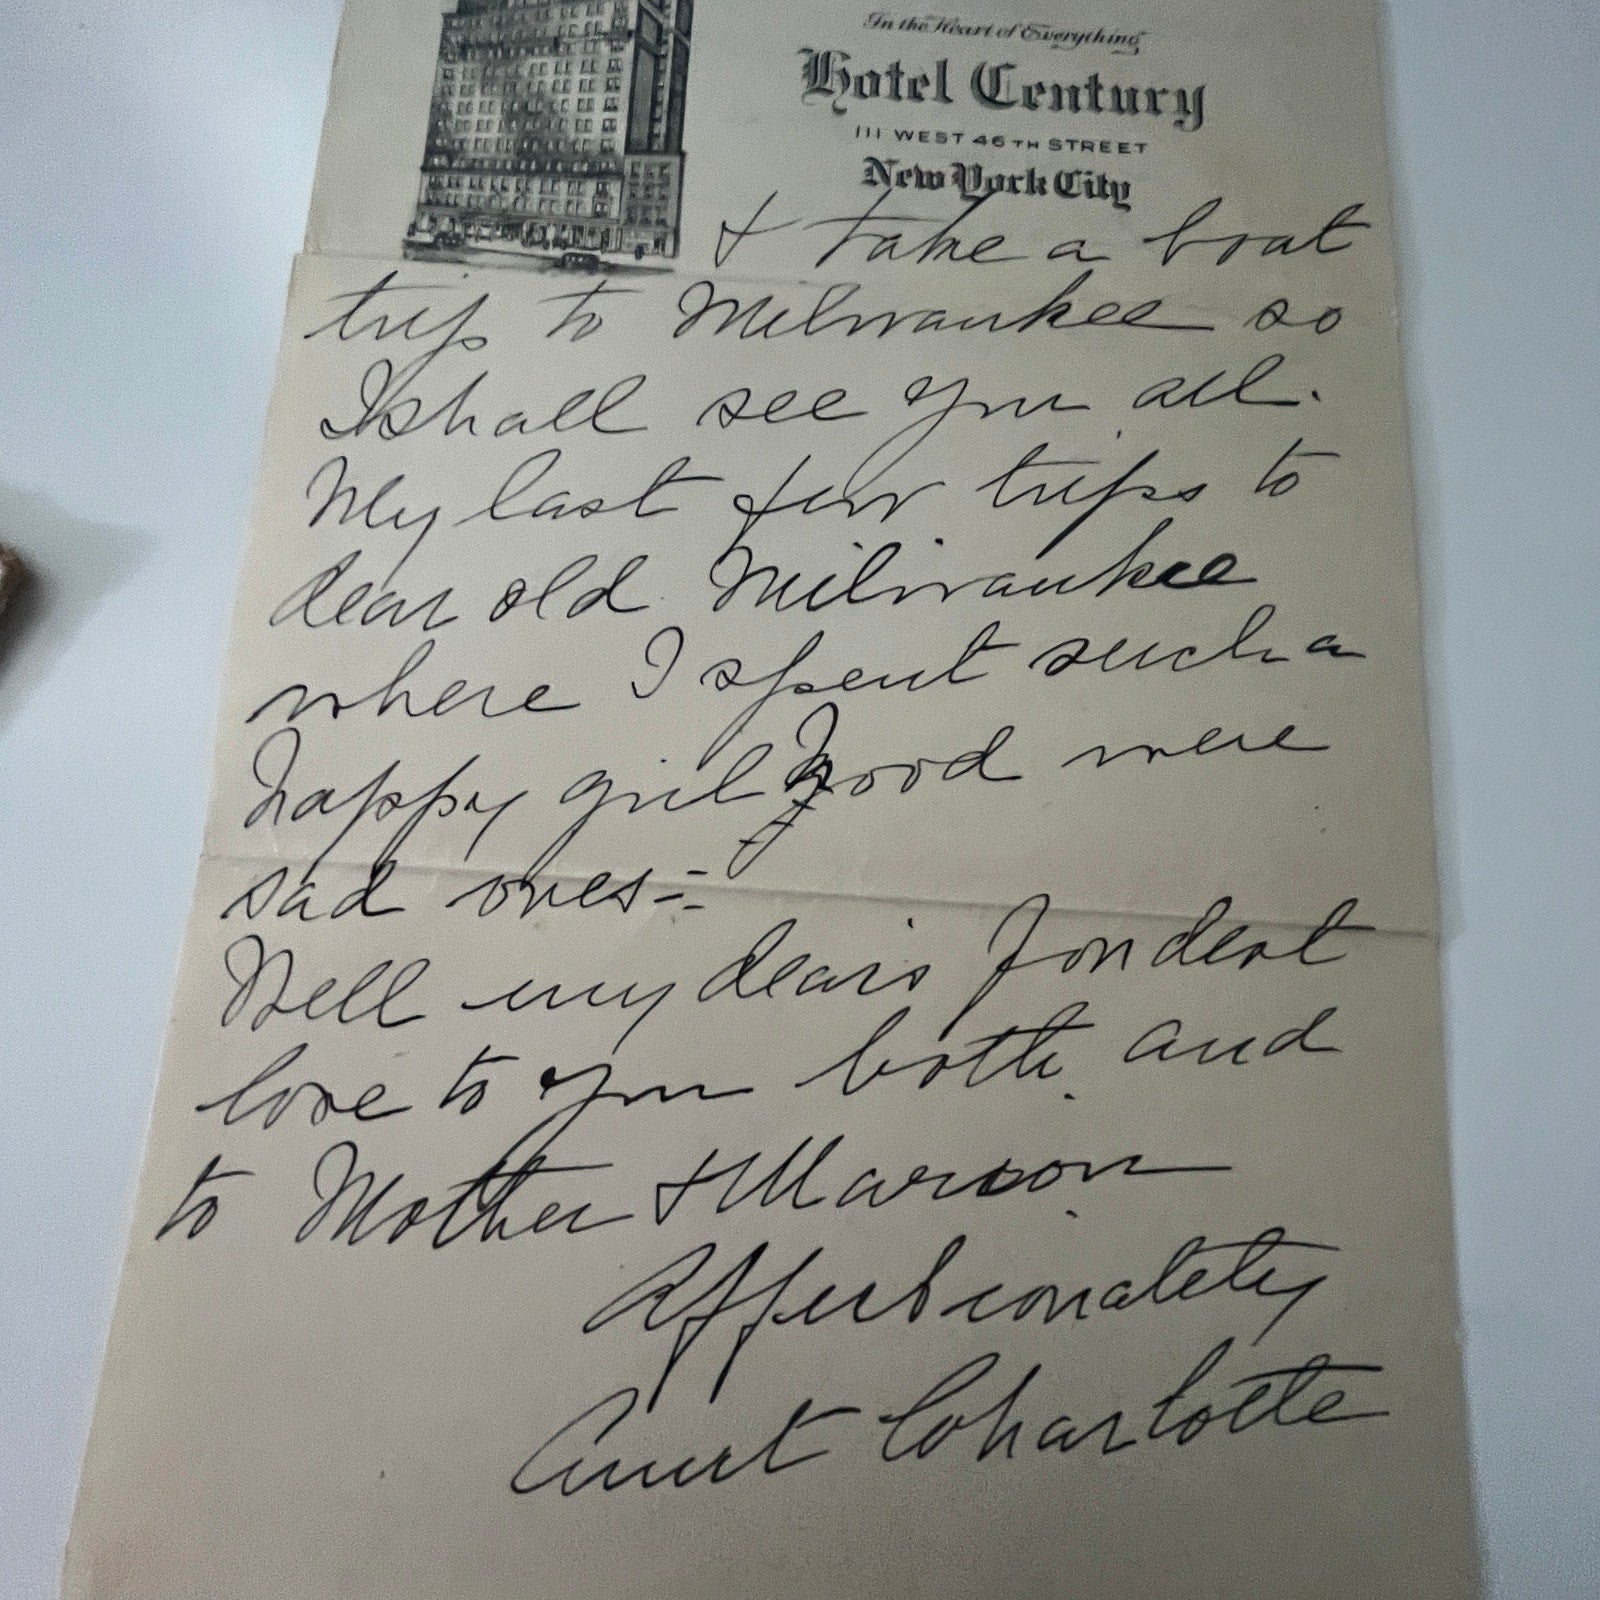 In the Heart of Everything
Hotel Century
111 WEST 46TH STREET
New York City
& take a boat
trip to Milwaukee so
I shall see you all.
My last few trips to
dear old Milwaukee
where I spent such a
happy girl hood were
sad ones =
Well my dears Fondest
love to you both and
to Mother & Marion
Affectionately
Aunt Charlotte